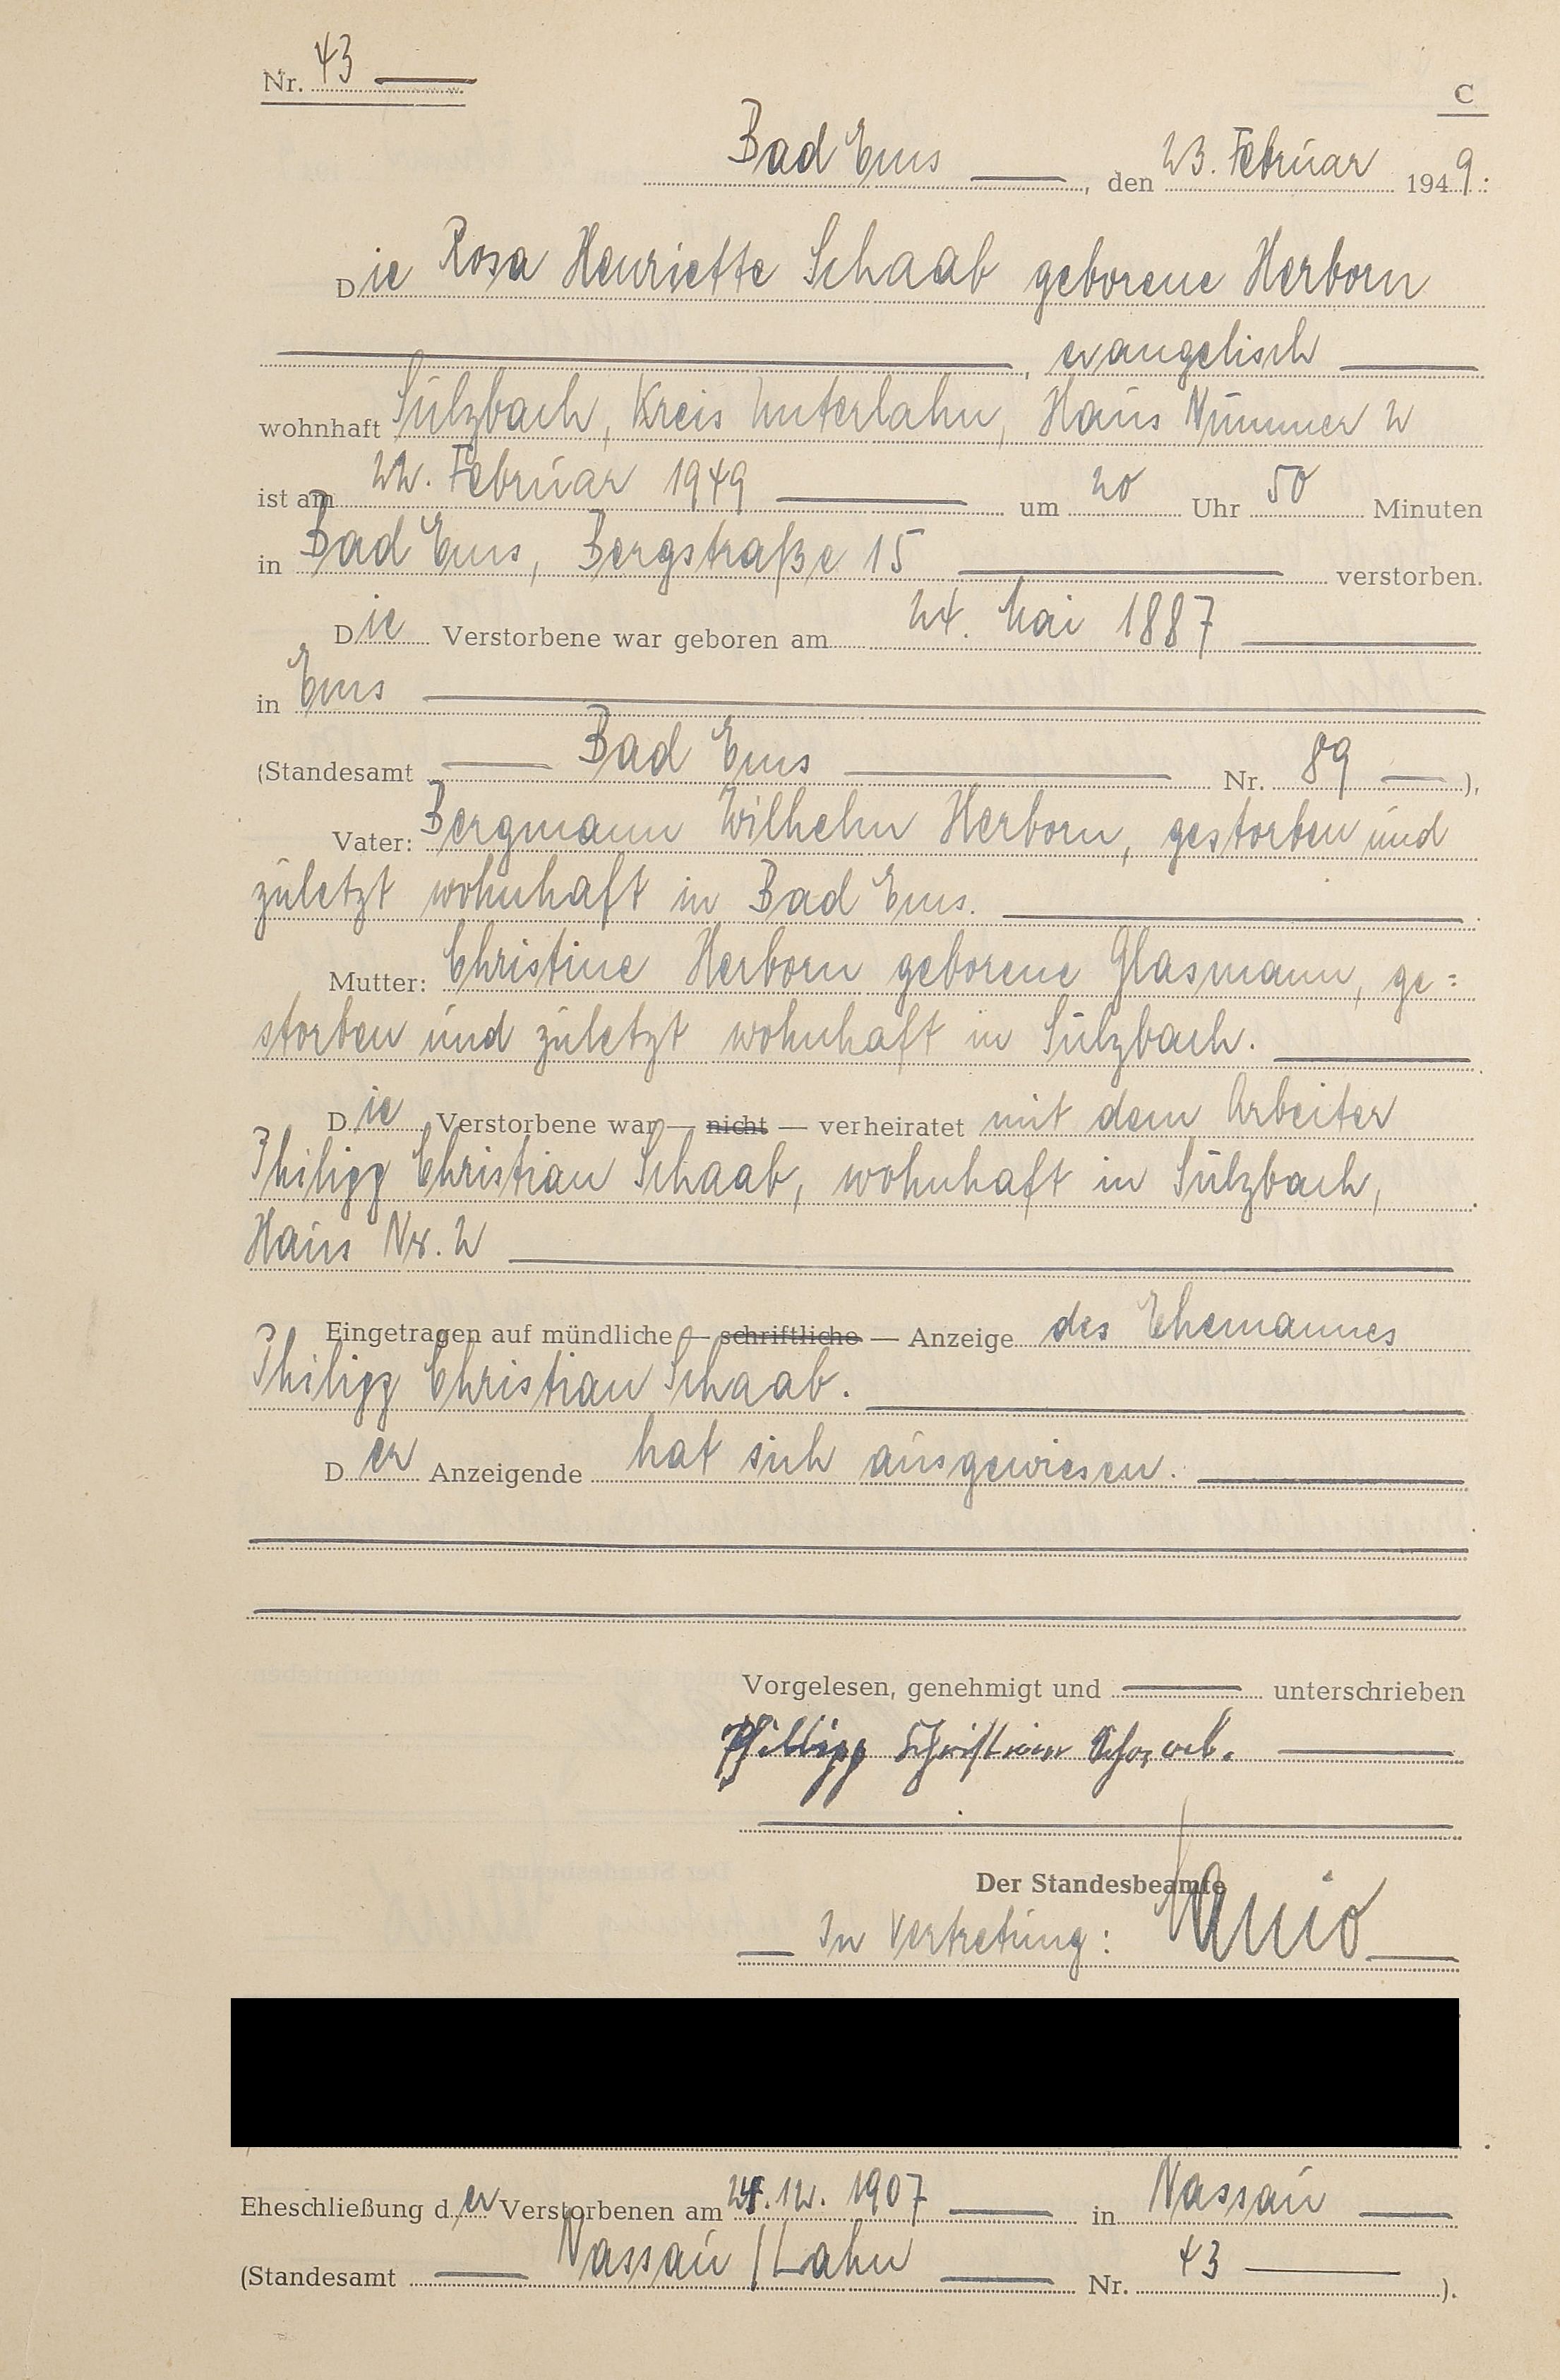 Nr. 43
C
Bad Ems, den 23. Februar 1949.
Die Rosa Henriette Schaab geborene Herborn
, evangelisch
wohnhaft Sulzbach, Kreis Unterlahn, Haus Nummer 2
ist am 22. Februar 1949 um 20 Uhr 50 Minuten
in Bad Ems, Bergstraße 15 verstorben.
Die Verstorbene war geboren am 24. Mai 1887
in Ems
(Standesamt Bad Ems Nr. 89 ),
Vater: Bergmann Wilhelm Herborn, gestorben und
zuletzt wohnhaft in Bad Ems.
Mutter: Christine Herborn geborene Glasmann, ge=
storben und zuletzt wohnhaft in Sulzbach.
Die Verstorbene war — nicht — verheiratet mit dem Arbeiter
Philipp Christian Schaab, wohnhaft in Sulzbach,
Haus Nr. 2
Eingetragen auf mündliche — schriftliche — Anzeige des Ehemannes
Philipp Christian Schaab.
Der Anzeigende hat sich ausgewiesen.
Vorgelesen, genehmigt und unterschrieben
Phillipp Christian Schaab.
Der Standesbeamte
In Vertretung:
Eheschließung der Verstorbenen am .12. 1907 in Nassau
(Standesamt Nassau / Lahn Nr. 43 ).